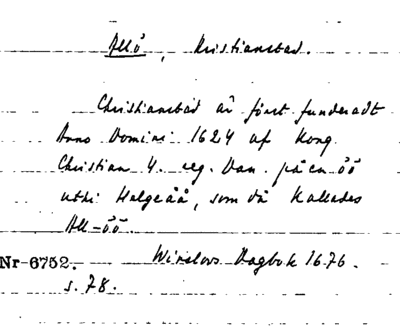 Allö, Kristianstad.
Christianstad är först funderadt
Anno Domini 1624 af Kong
Christian 4. reg. Dan. på en öö
uthi Helgeåå, som då kallades
All-öö.
Nr 6752. Winslows Dagbok 1676.
s. 78.